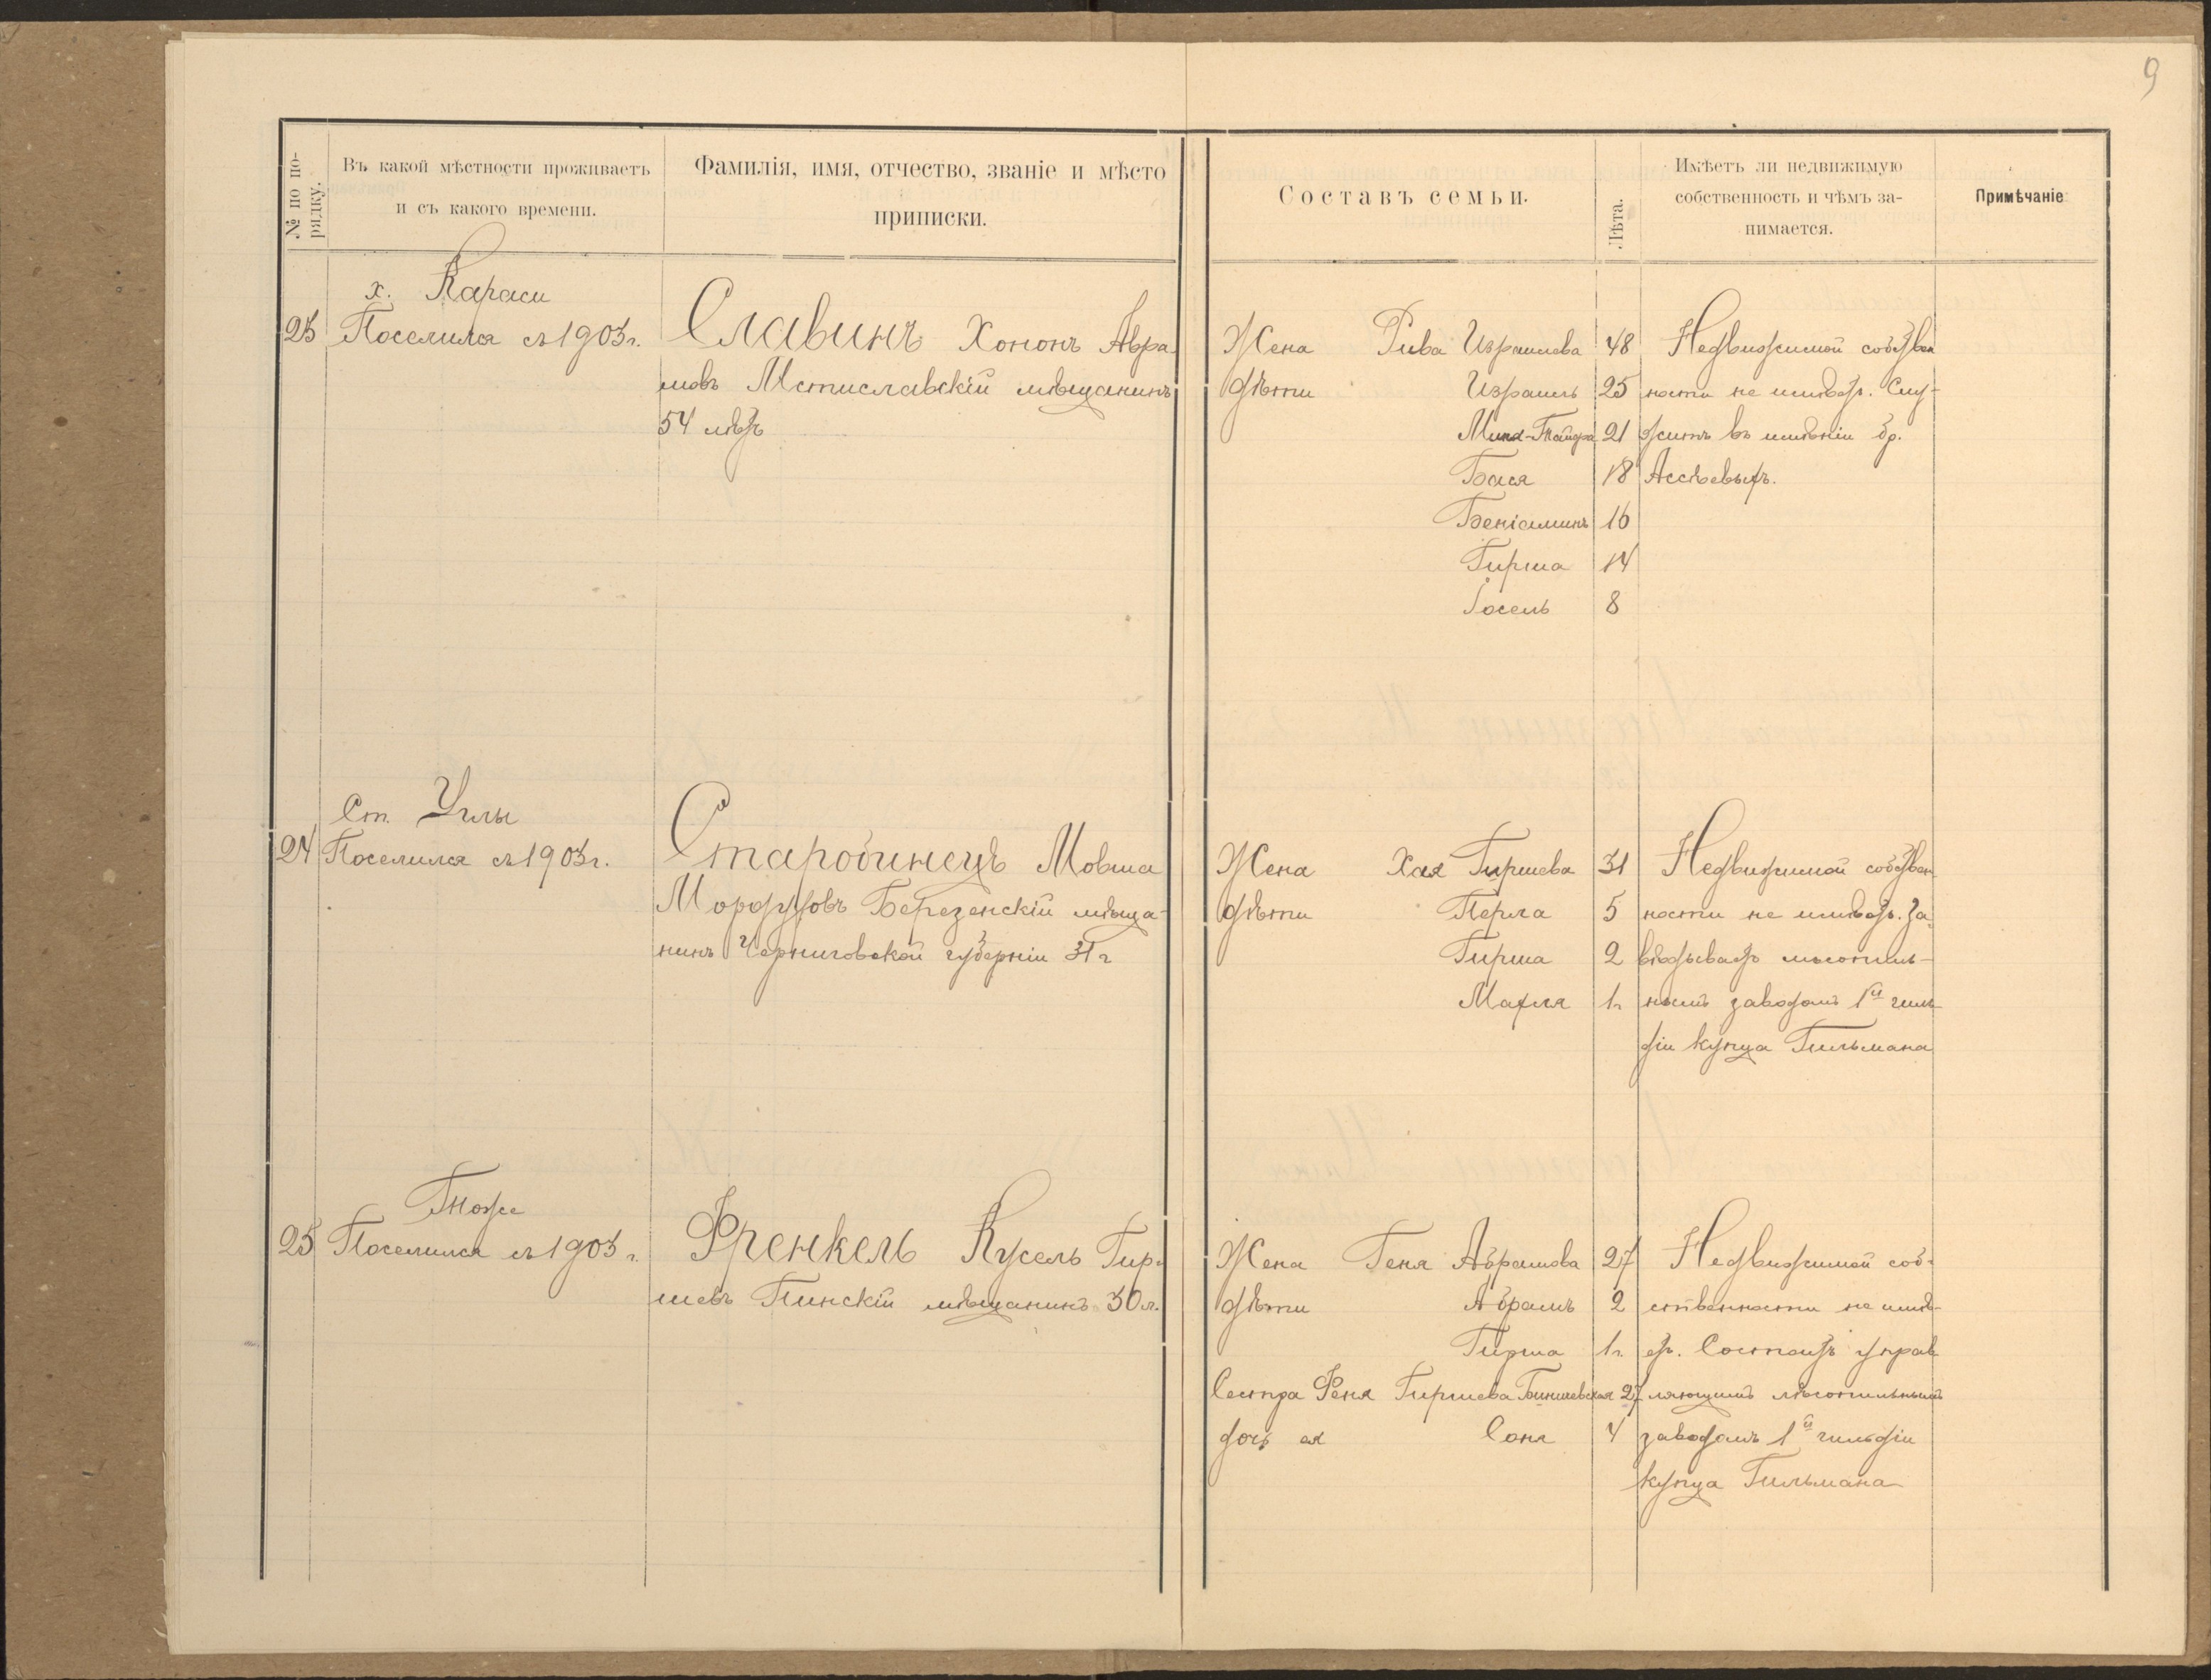 9
№ по по-
рядку.
Въ какой мѣстности проживаетъ
и съ какого времени.
Фамилія, имя, отчество, званіе и мѣсто
приписки.
Составъ семьи.
Лѣта.
Имѣетъ ли недвижимую
собственность и чѣмъ за-
нимается.
Примѣчаніе
х. Караси
23 Поселился съ 1903 г.
Славинъ Хононъ Абра-
мовъ Мстиславскій мѣщанинъ
54 лѣтъ
Жена Рива Израилева 48
Дѣти Израиль 25
21
Бася 18
Беніаминъ 16
Гирша 14
Іосель 8
Недвижимой собствен
ности не имѣетъ. Слу-
житъ въ имѣніи бр.
Ст. Углы
24 Поселился съ 1903 г.
Старобинецъ Мовша
Мордуховъ Березенскій мѣща-
нинъ Черниговской губерніи 31 г
Жена Хая Гиршева 31
Дѣти Перла 5
Гирша 2
Махля 1 г.
Недвижимой собствен
ности не имѣетъ. За
вѣдываетъ лѣсопиль-
нымъ заводомъ 1й гиль
діи купца Гильмана
Тоже
25 Поселился съ 1903 г.
Френкель Кусель Гир-
шевъ Пинскій мѣщанинъ 30 л.
Жена Геня Абрамова 27
Дѣти Абрамъ 2
Гирша 1 г.
Сестра Феня Гиршева 27
дочь ея Соня 4
Недвижимой соб-
ственности не имѣ-
етъ. Состоитъ управ
ляющимъ лѣсопильнымъ
заводомъ 1й гильдіи
купца Гильмана